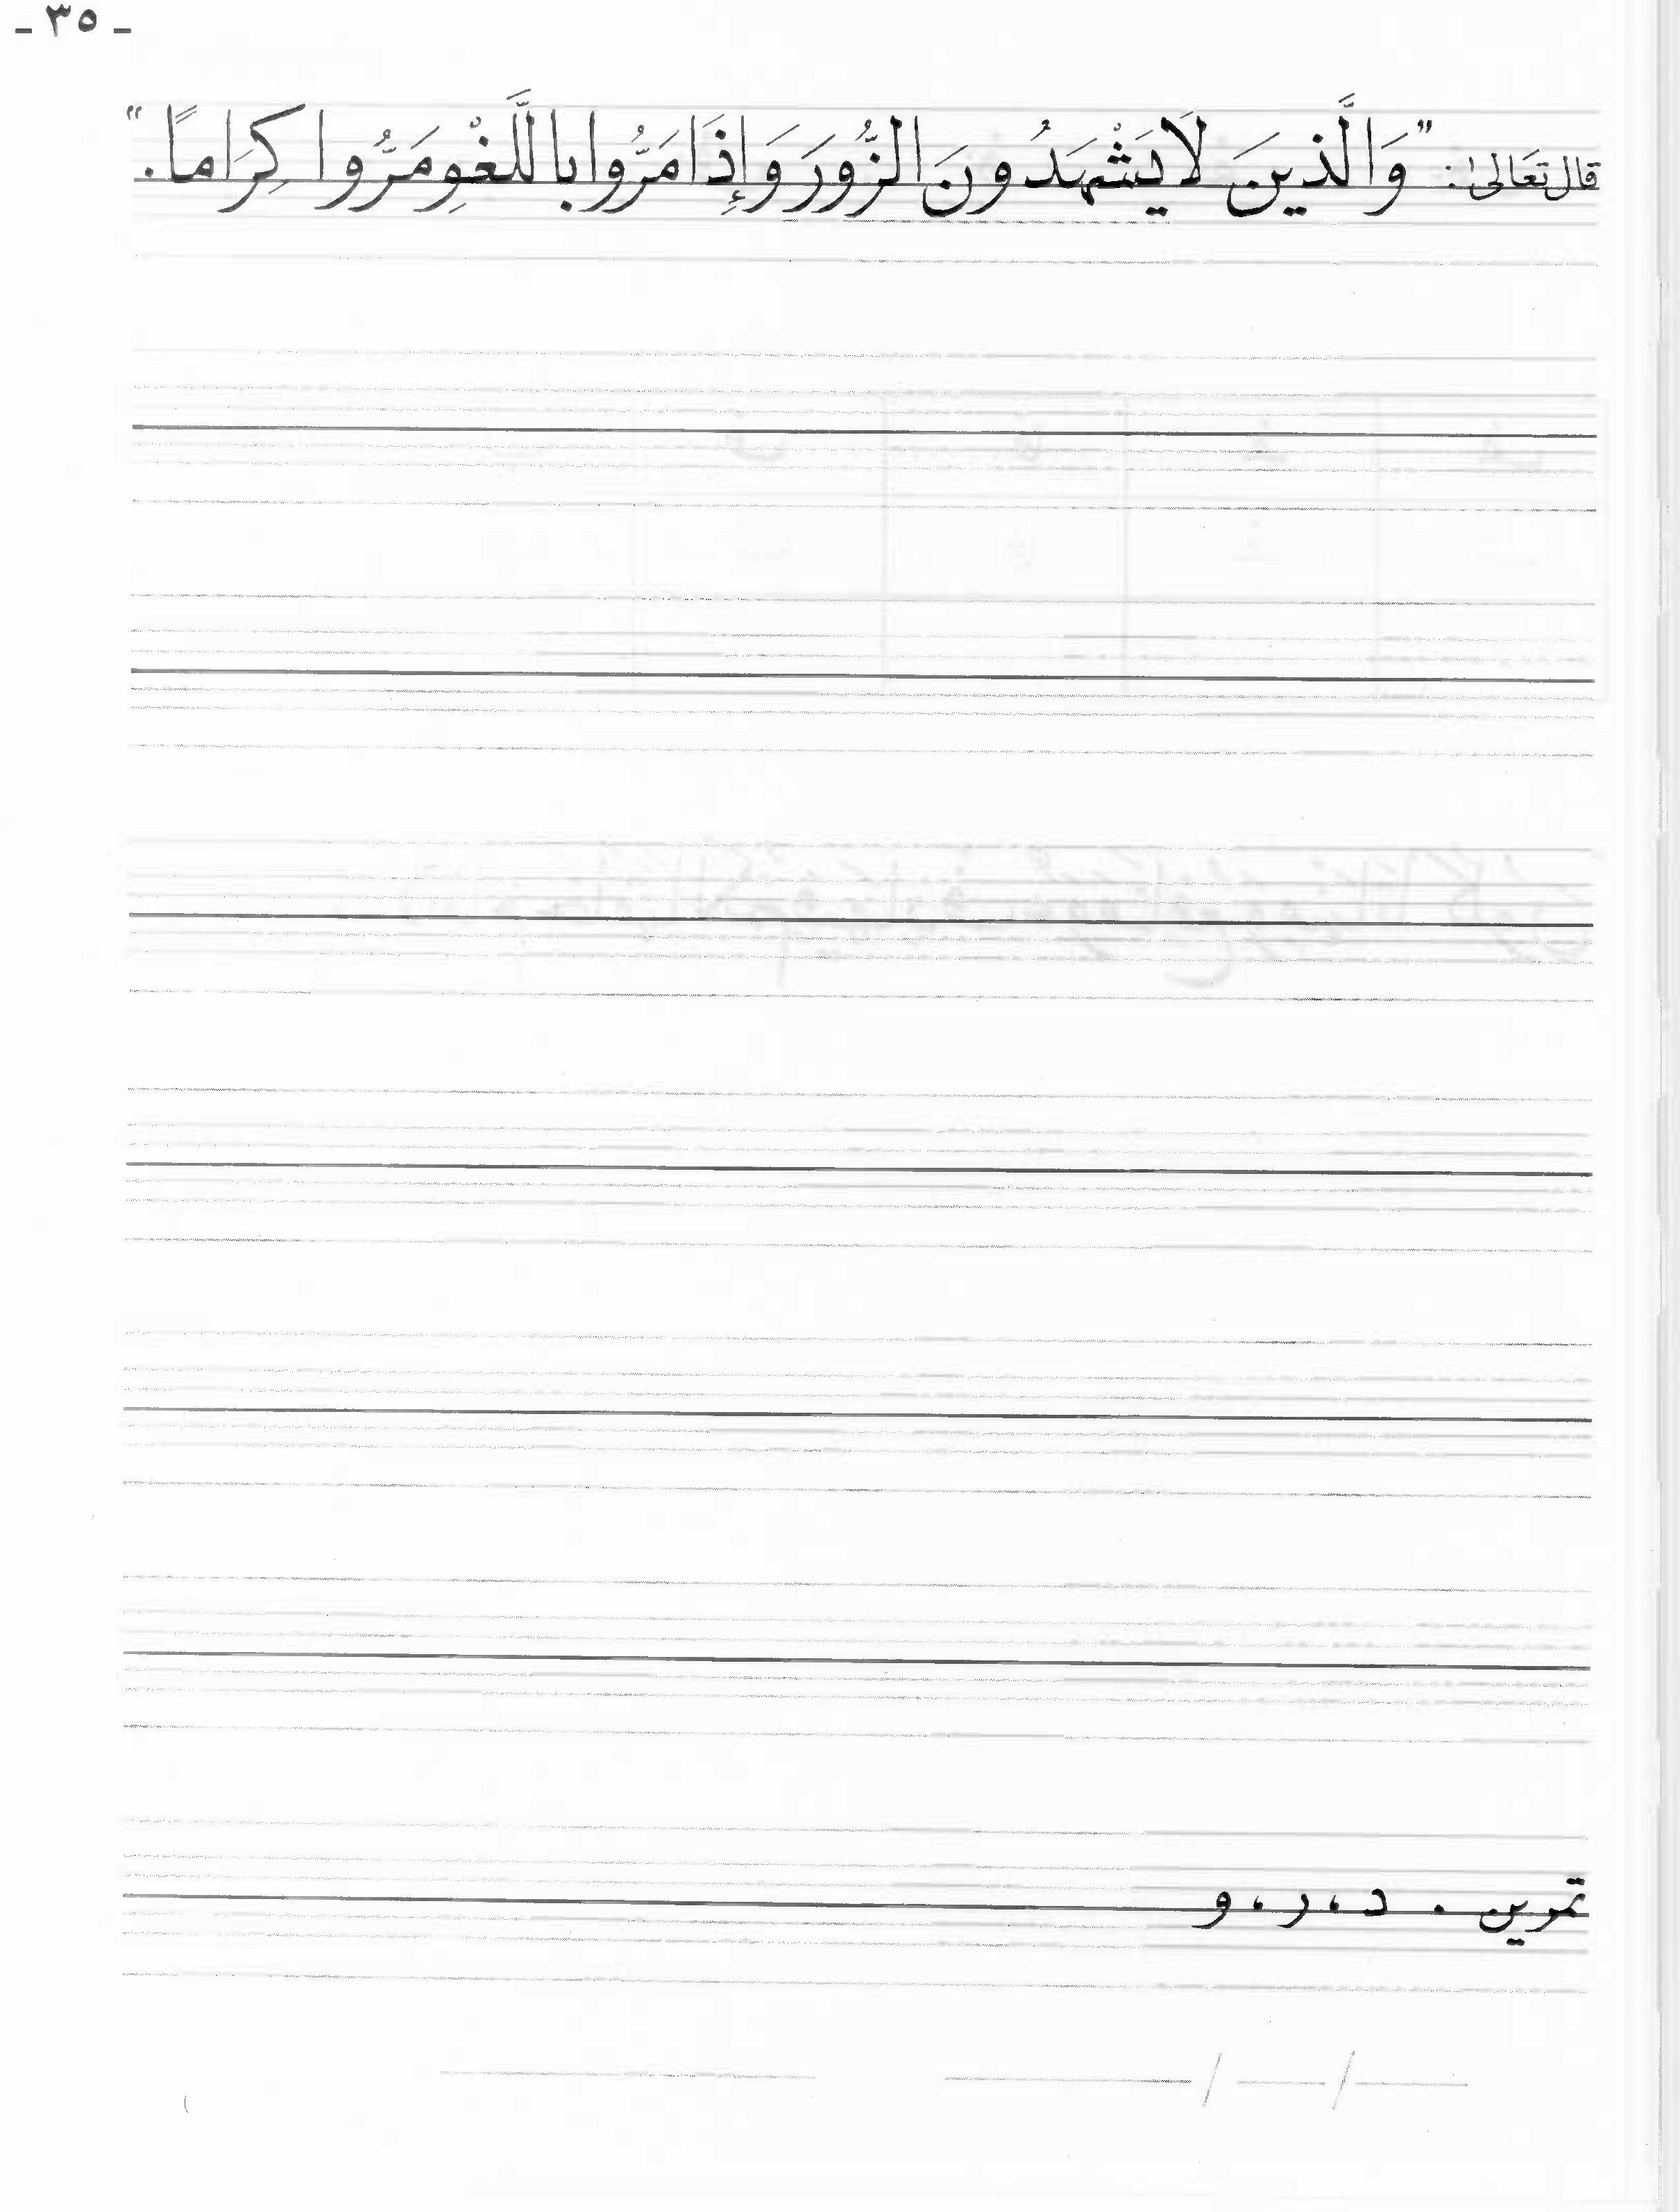 - ٣٥ -
قال تعَالىٰ: "وَالَّذينَ لَا يَشْهَدُونَ الزُّورَ وَإِذَا مَرُّوا باللَّغْوِ مَرُّوا كِرَاماً."
تمرين . د، ر، و
/ /